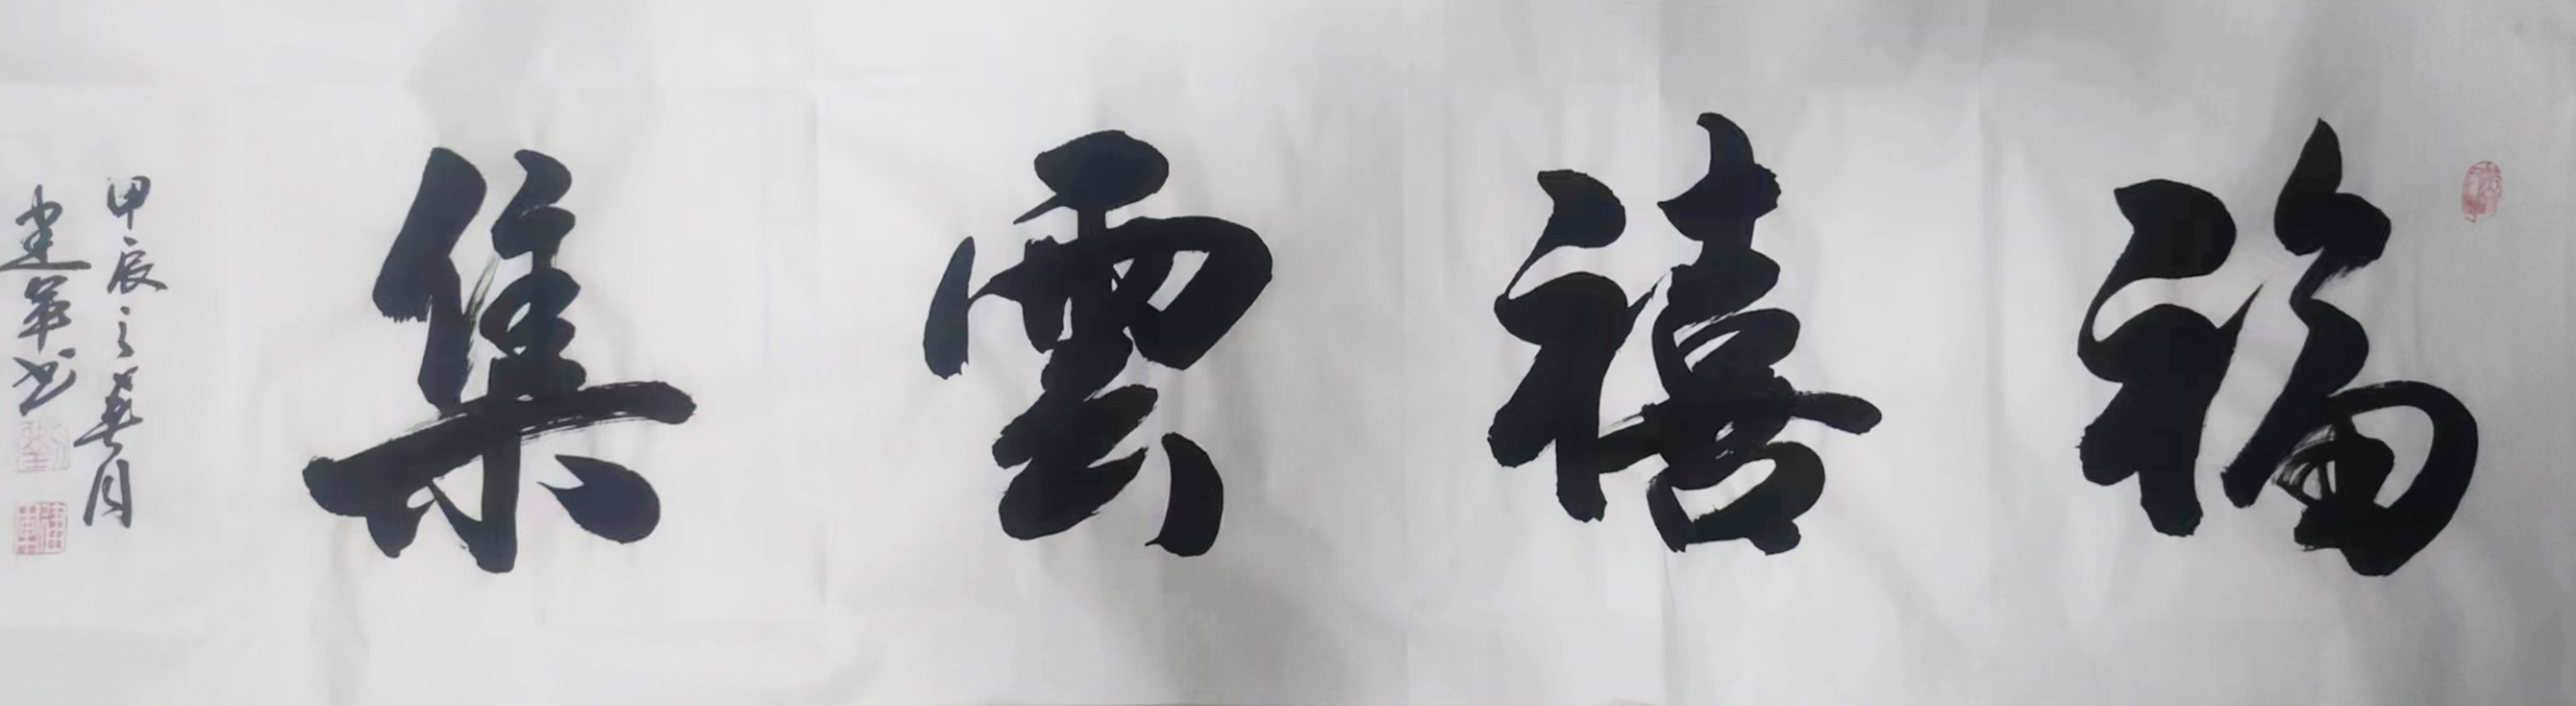 福禧雲集
甲辰之春月
建軍书